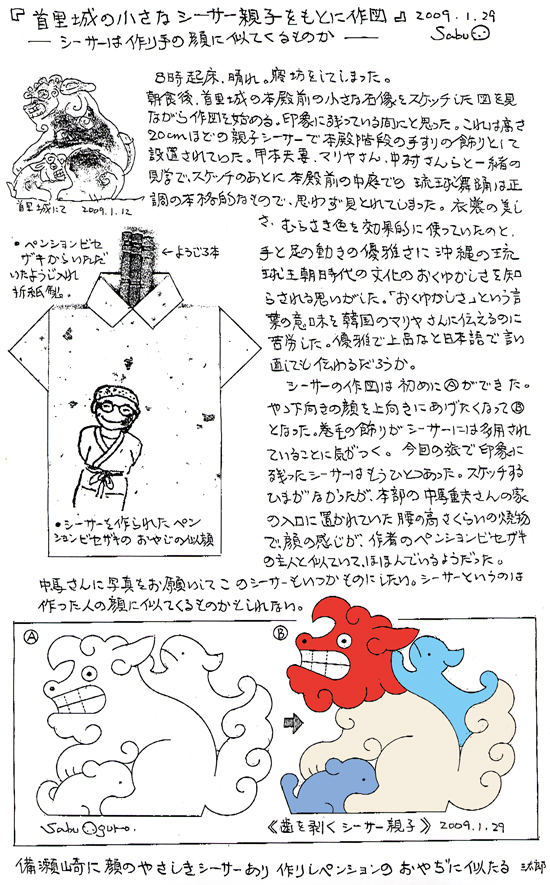 『首里城の小さなシーサー親子をもとに作図』 2009.1.29
― シーサーは作り手の顔に似てくるものか ― Sabu
8時起床、晴れ。寝坊をしてしまった。
朝食後、首里城の本殿前の小さな石像をスケッチした図を見
ながら作図を始める。印象に残っている間にと思った。これは高さ
20cmほどの親子シーサーで本殿階段の手すりの飾りとして
設置されていた。甲本夫妻、マリヤさん、中村さんらと一緒の
見学で、スケッチのあとに本殿前の中庭での琉球舞踊は正
調の本格的なもので、思わず見とれてしまった。衣裳の美し
さ、むらさき色を効果的に使っていたのと、
手と足の動きの優雅さに沖縄の琉
球王朝時代の文化のおくゆかしさを知
らされる思いがした。「おくゆかしさ」という言
葉の意味を韓国のマリヤさんに伝えるのに
苦労した。優雅で上品なと日本語で言い
直しても伝わるだろうか。
シーサーの作図は初めにⒶができた。
やゝ下向きの顔を上向きにあげたくなってⒷ
となった。巻毛の飾りがシーサーには多用され
ていることに気がつく。今回の旅で印象に
残ったシーサーはもうひとつあった。スケッチする
ひまがなかったが、本部の中馬重夫さんの家
の入口に置かれていた腰の高さくらいの焼物
で、顔の感じが、作者のペンションビセザキ
の主人と似ていて、ほほえんでいるようだった。
中馬さんに写真をお願いしてこのシーサーもいつかものにしたい。シーサーというのは
作った人の顔に似てくるものかもしれない。
首里城にて 2009.1.12
・ペンションビセ
ザキからいただ
いたようじ入れ
折紙製。
←ようじ3本
・シーサーを作られたペン
ションビセザキのおやじの似顔
Ⓐ
Sabu Oguro.
Ⓑ
《歯を剥くシーサー親子》 2009.1.29
備瀬崎に顔のやさしきシーサーあり 作りしペンションのおやぢに似たる 三郎